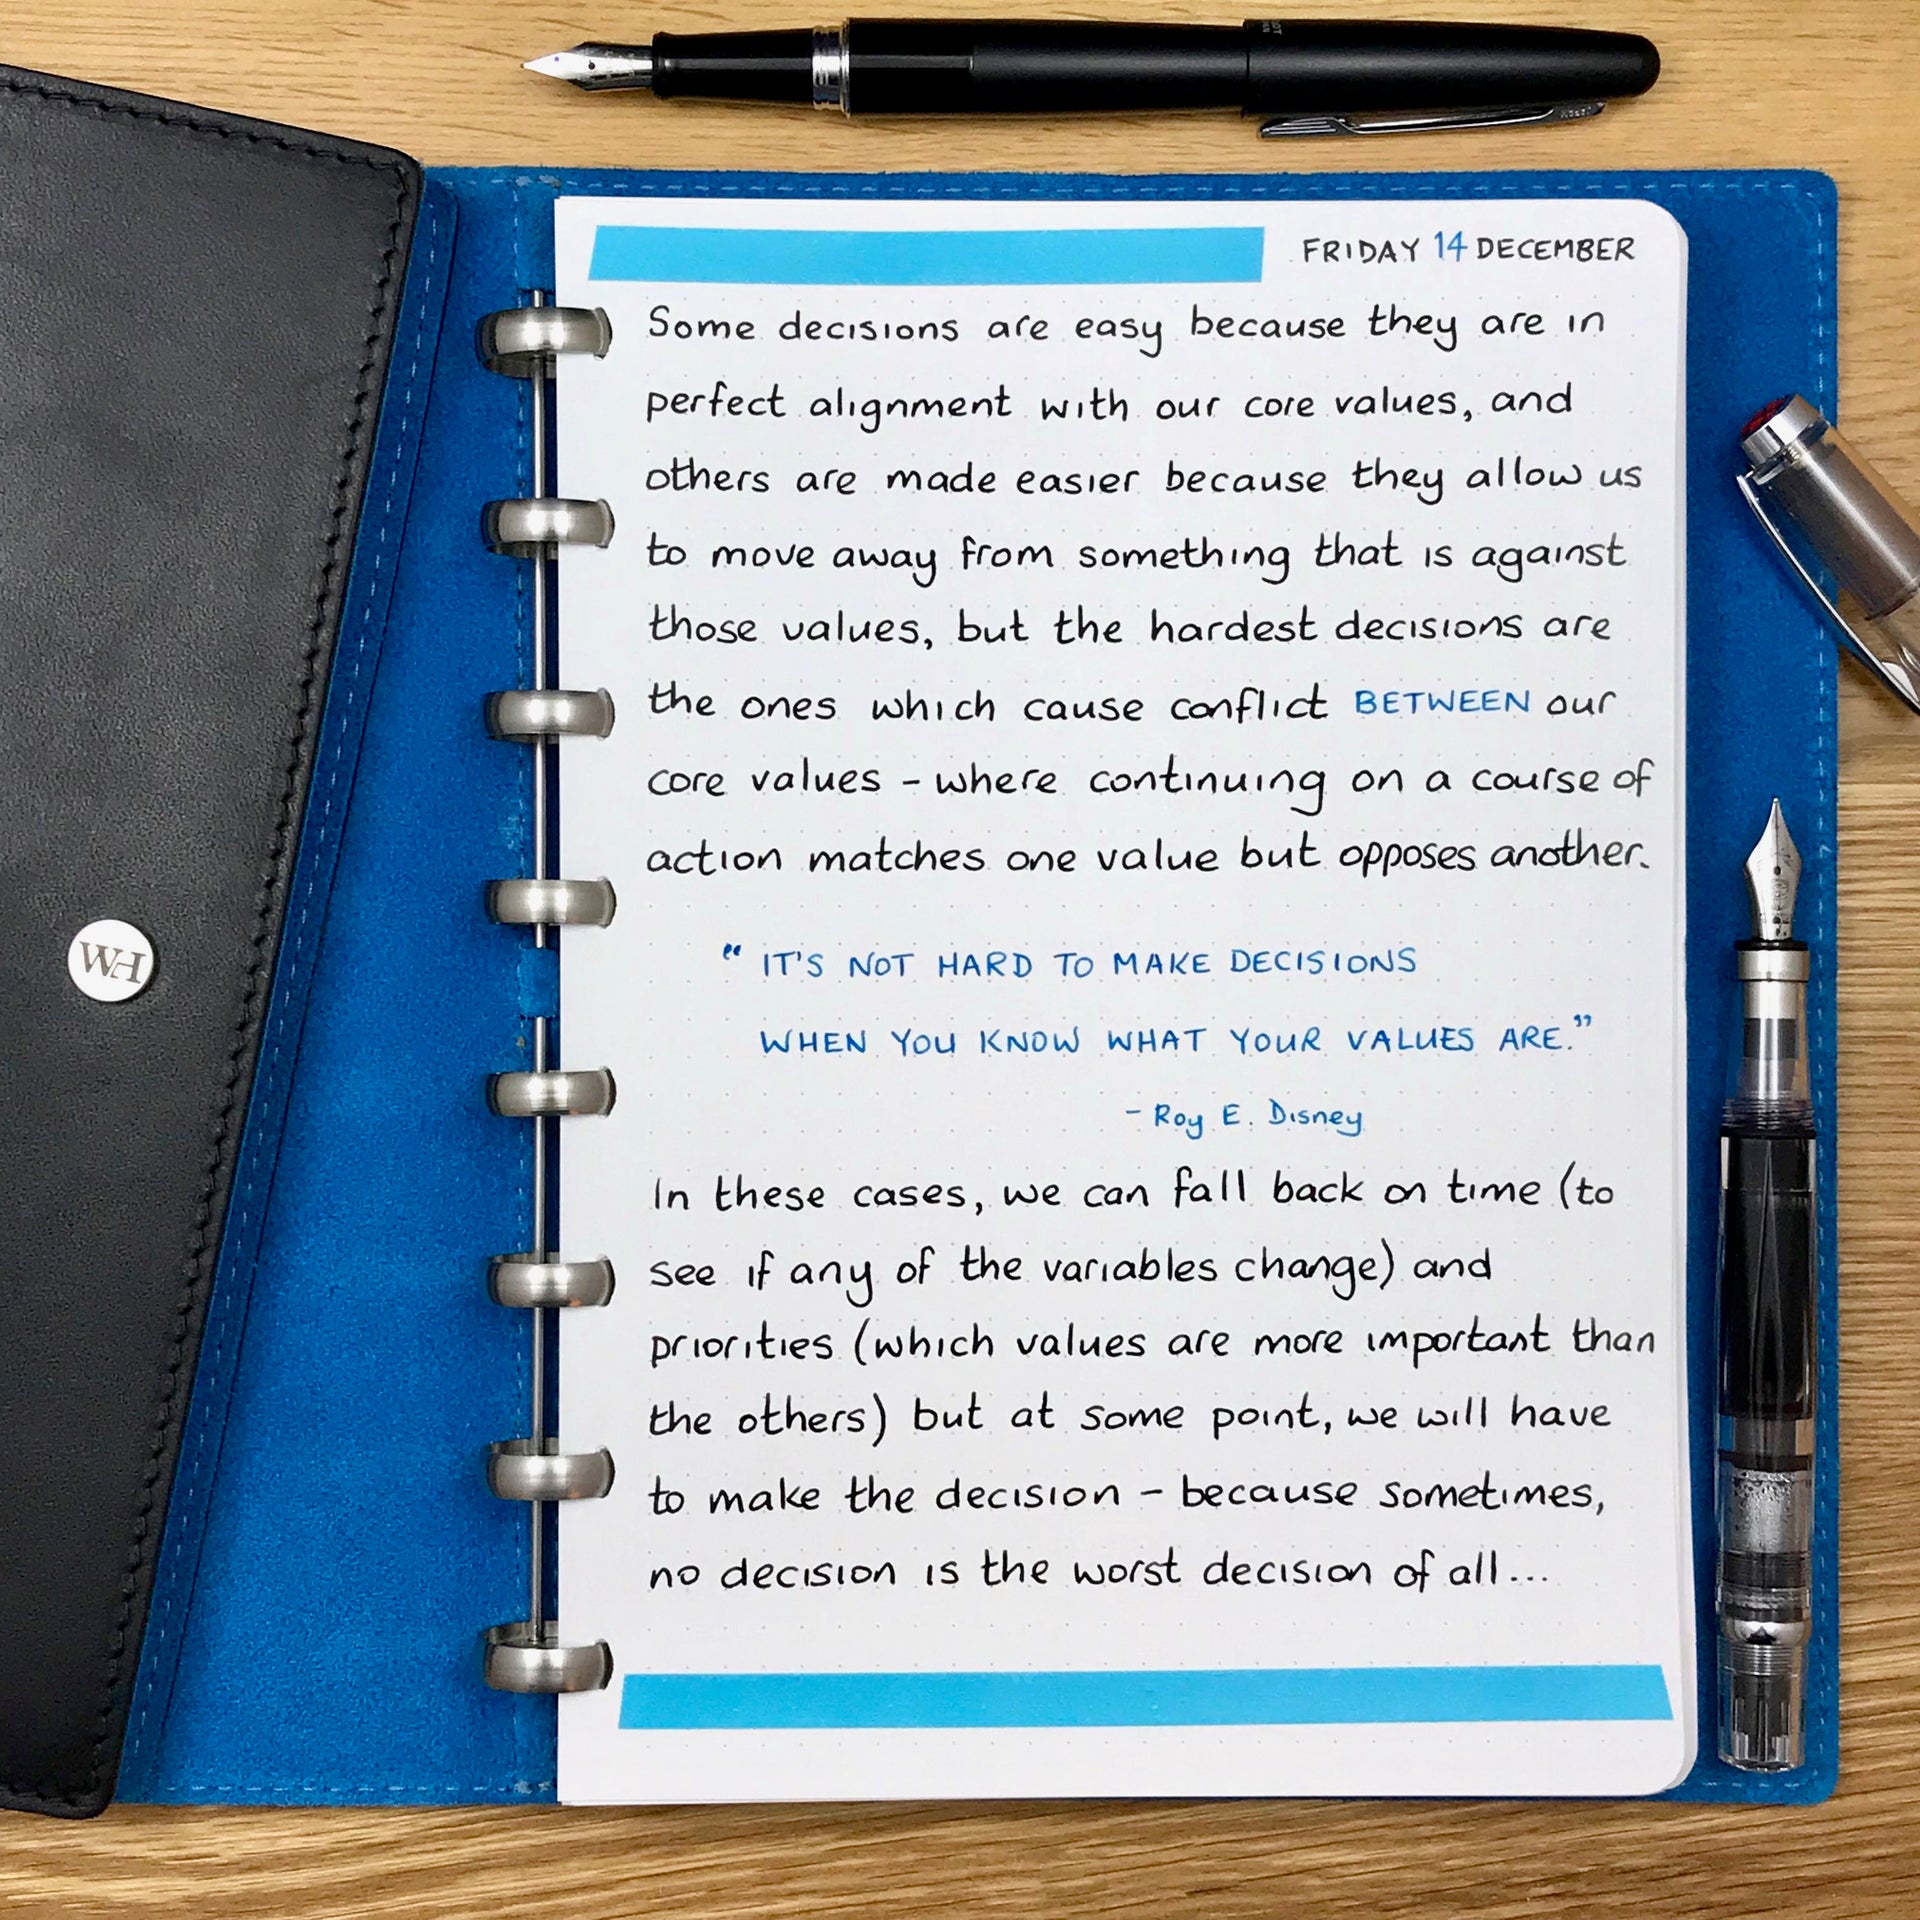 FRIDAY 14 DECEMBER
Some decisions are easy because they are in
perfect alignment with our core values, and
others are made easier because they allow us
to move away from something that is against
those values, but the hardest decisions are
the ones which cause conflict BETWEEN our
core values – where continuing on a course of
action matches one value but opposes another.
“IT'S NOT HARD TO MAKE DECISIONS
WHEN YOU KNOW WHAT YOUR VALUES ARE.”
– Roy E. Disney
In these cases, we can fall back on time (to
see if any of the variables change) and
priorities (which values are more important than
the others) but at some point, we will have
to make the decision – because sometimes,
no decision is the worst decision of all...
WH